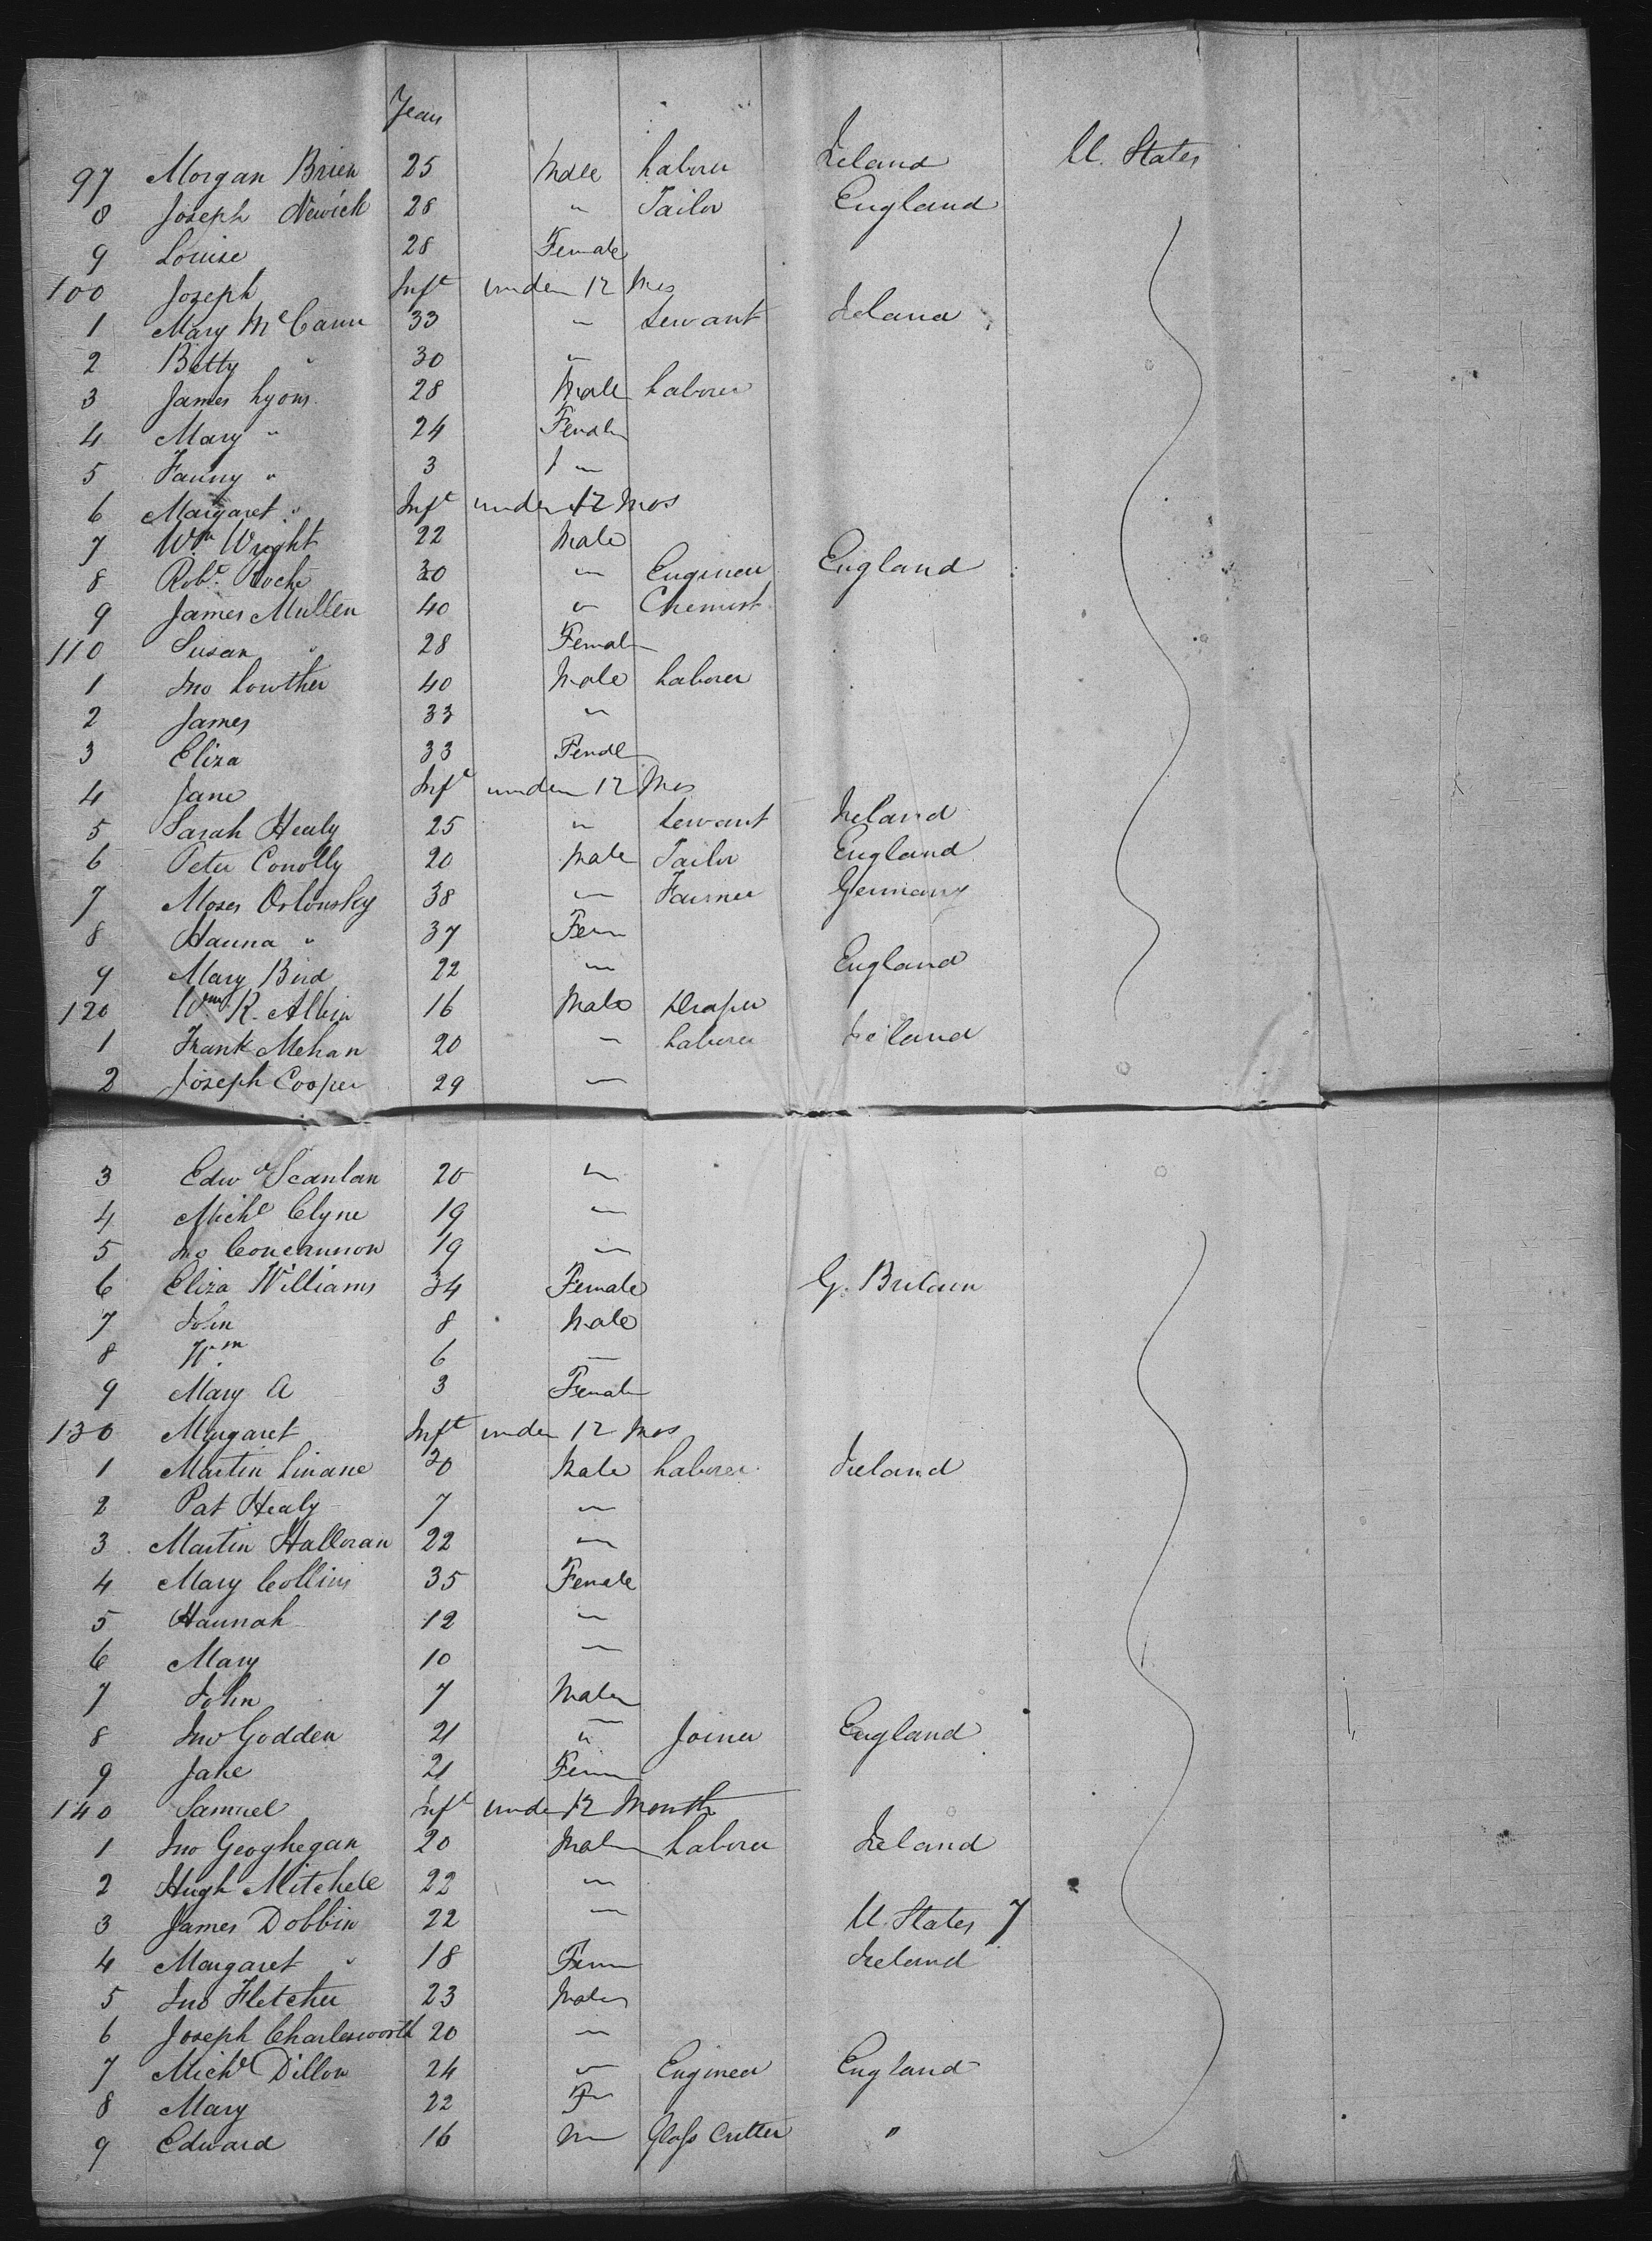 Years
97 Morgan Brien 25 Male Laborer Ireland U. States
8 Joseph Newick 28 " Tailor England
9 Louise 28 Female
100 Joseph Inft under 12 Mos
1 Mary McCann 33 " Servant Ireland
2 Betty " 30 "
3 James Lyons 28 Male Laborer
4 Mary " 24 Female
5 Fanny " 3 "
6 Margaret " Inft under 12 Mos
7 Wm Wright 22 Male
8 Robt Roche 30 " Engineer England
9 James Mullen 40 " Chemist
110 Susan " 28 Female
1 Jno Lowther 40 Male Laborer
2 James 33 "
3 Eliza 33 Female
4 Jane Inft under 12 Mos
5 Sarah Healy 25 " Servant Ireland
6 Peter Conolly 20 Male Tailor England
7 Moses Orlonsky 38 " Farmer Germany
8 Hanna " 37 Fem
9 Mary Bird 22 " England
120 Wm R. Albin 16 Male Draper
1 Frank Mehan 20 " Laborer Ireland
2 Joseph Cooper 29 "
3 Edwd Scanlan 20 "
4 Michl Clyne 19 "
5 Jno Concannon 19 "
6 Eliza Williams 34 Female G. Britain
7 John 8 Male
8 Wm 6 "
9 Mary A 3 Female
130 Margaret Inft under 12 Mos
1 Martin Linane 20 Male Laborer Ireland
2 Pat Healy 7 "
3 Martin Halloran 22 "
4 Mary Collins 35 Female
5 Hannah 12 "
6 Mary 10 "
7 John 7 Male
8 Jno Godden 21 " Joiner England
9 Jane 21 Fem
140 Samuel Inft under 12 Month
1 Jno Geoghegan 20 Male Laborer Ireland
2 Hugh Mitchell 22 "
3 James Dobbin 22 " U. States 7
4 Margaret " 18 Fem Ireland
5 Jno Fletcher 23 Male
6 Joseph Charlesworth 20 "
7 Michl Dillon 24 " Engineer England
8 Mary 22 F
9 Edward 16 M Glass Cutter "